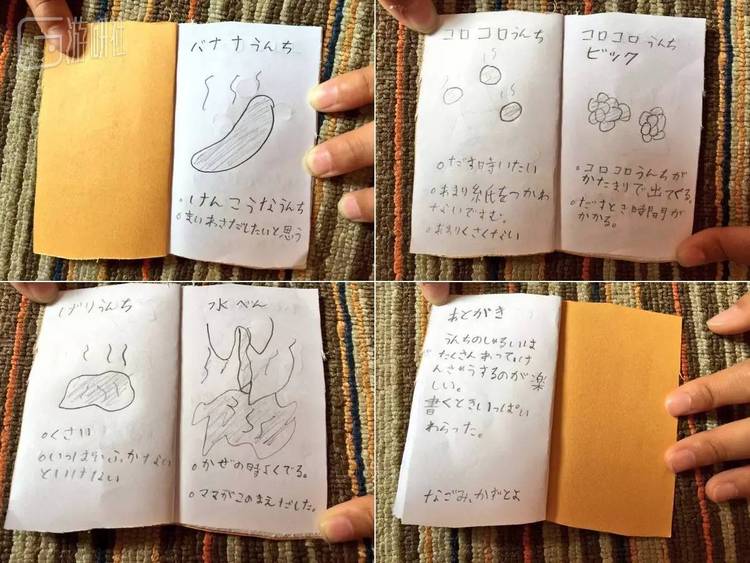 游研社
バナナうんち
○けんこうなうんち
○まいあさだしたいと思う
コロコロうんち
○だす時いたい
○あまり紙をつかわ
ないですむ。
○あまりくさくない
コロコロうんち
ビック
○コロコロうんちが
かたまりで出てくる。
○だすとき時間が
かかる。
げりうんち
○くさい
○いっぱいふかない
といけない
水べん
○かぜの時よくでる。
○ママがこのまえだした。
あとがき
うんちのしゅるいは
たくさんあってけ
んきゅうするのが楽
しい。
書くときいっぱい
わらった。
なごみ、かずとよ